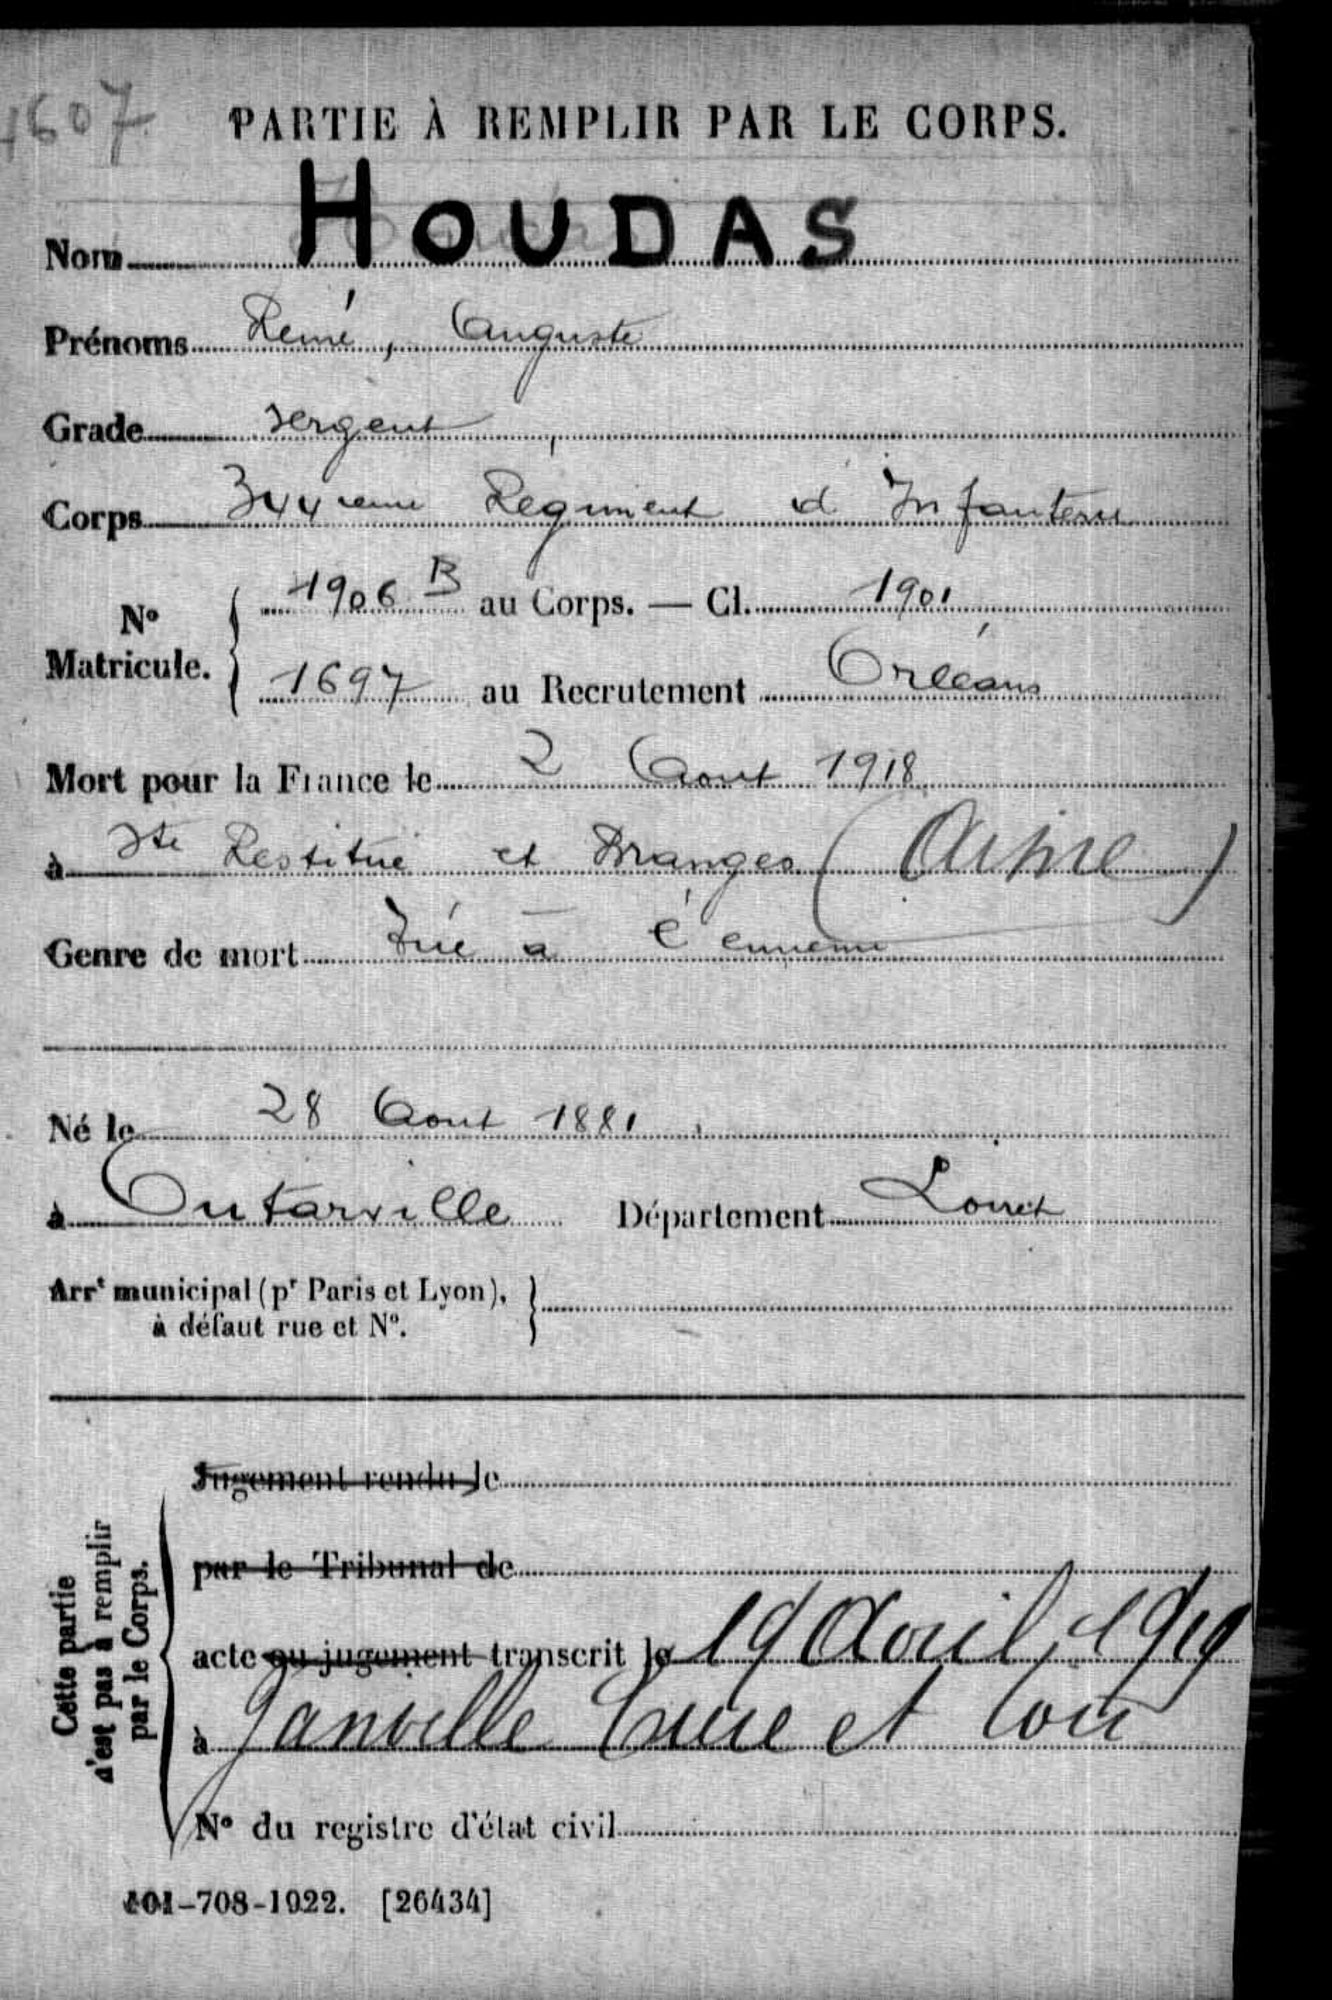 1607
PARTIE À REMPLIR PAR LE CORPS.
Nom HOUDAS
Prénoms René, Auguste
Grade Sergent
Corps 344ème Régiment d'Infanterie
N° Matricule. 1906 B au Corps. — Cl. 1901
1697 au Recrutement Orléans
Mort pour la France le 2 Aout 1918
à Ste Restitue et Branges (Aisne)
Genre de mort Tué à l'ennemi
Né le 28 Aout 1881
à Outarville Département Loiret
Arrt municipal (pr Paris et Lyon),
à défaut rue et N°.
Cette partie
n'est pas à remplir
par le Corps.
Jugement rendu le
par le Tribunal de
acte ou jugement transcrit le 19 Avril 1919
à Janville Eure et Loir
N° du registre d'état civil
101-708-1922. [26434]